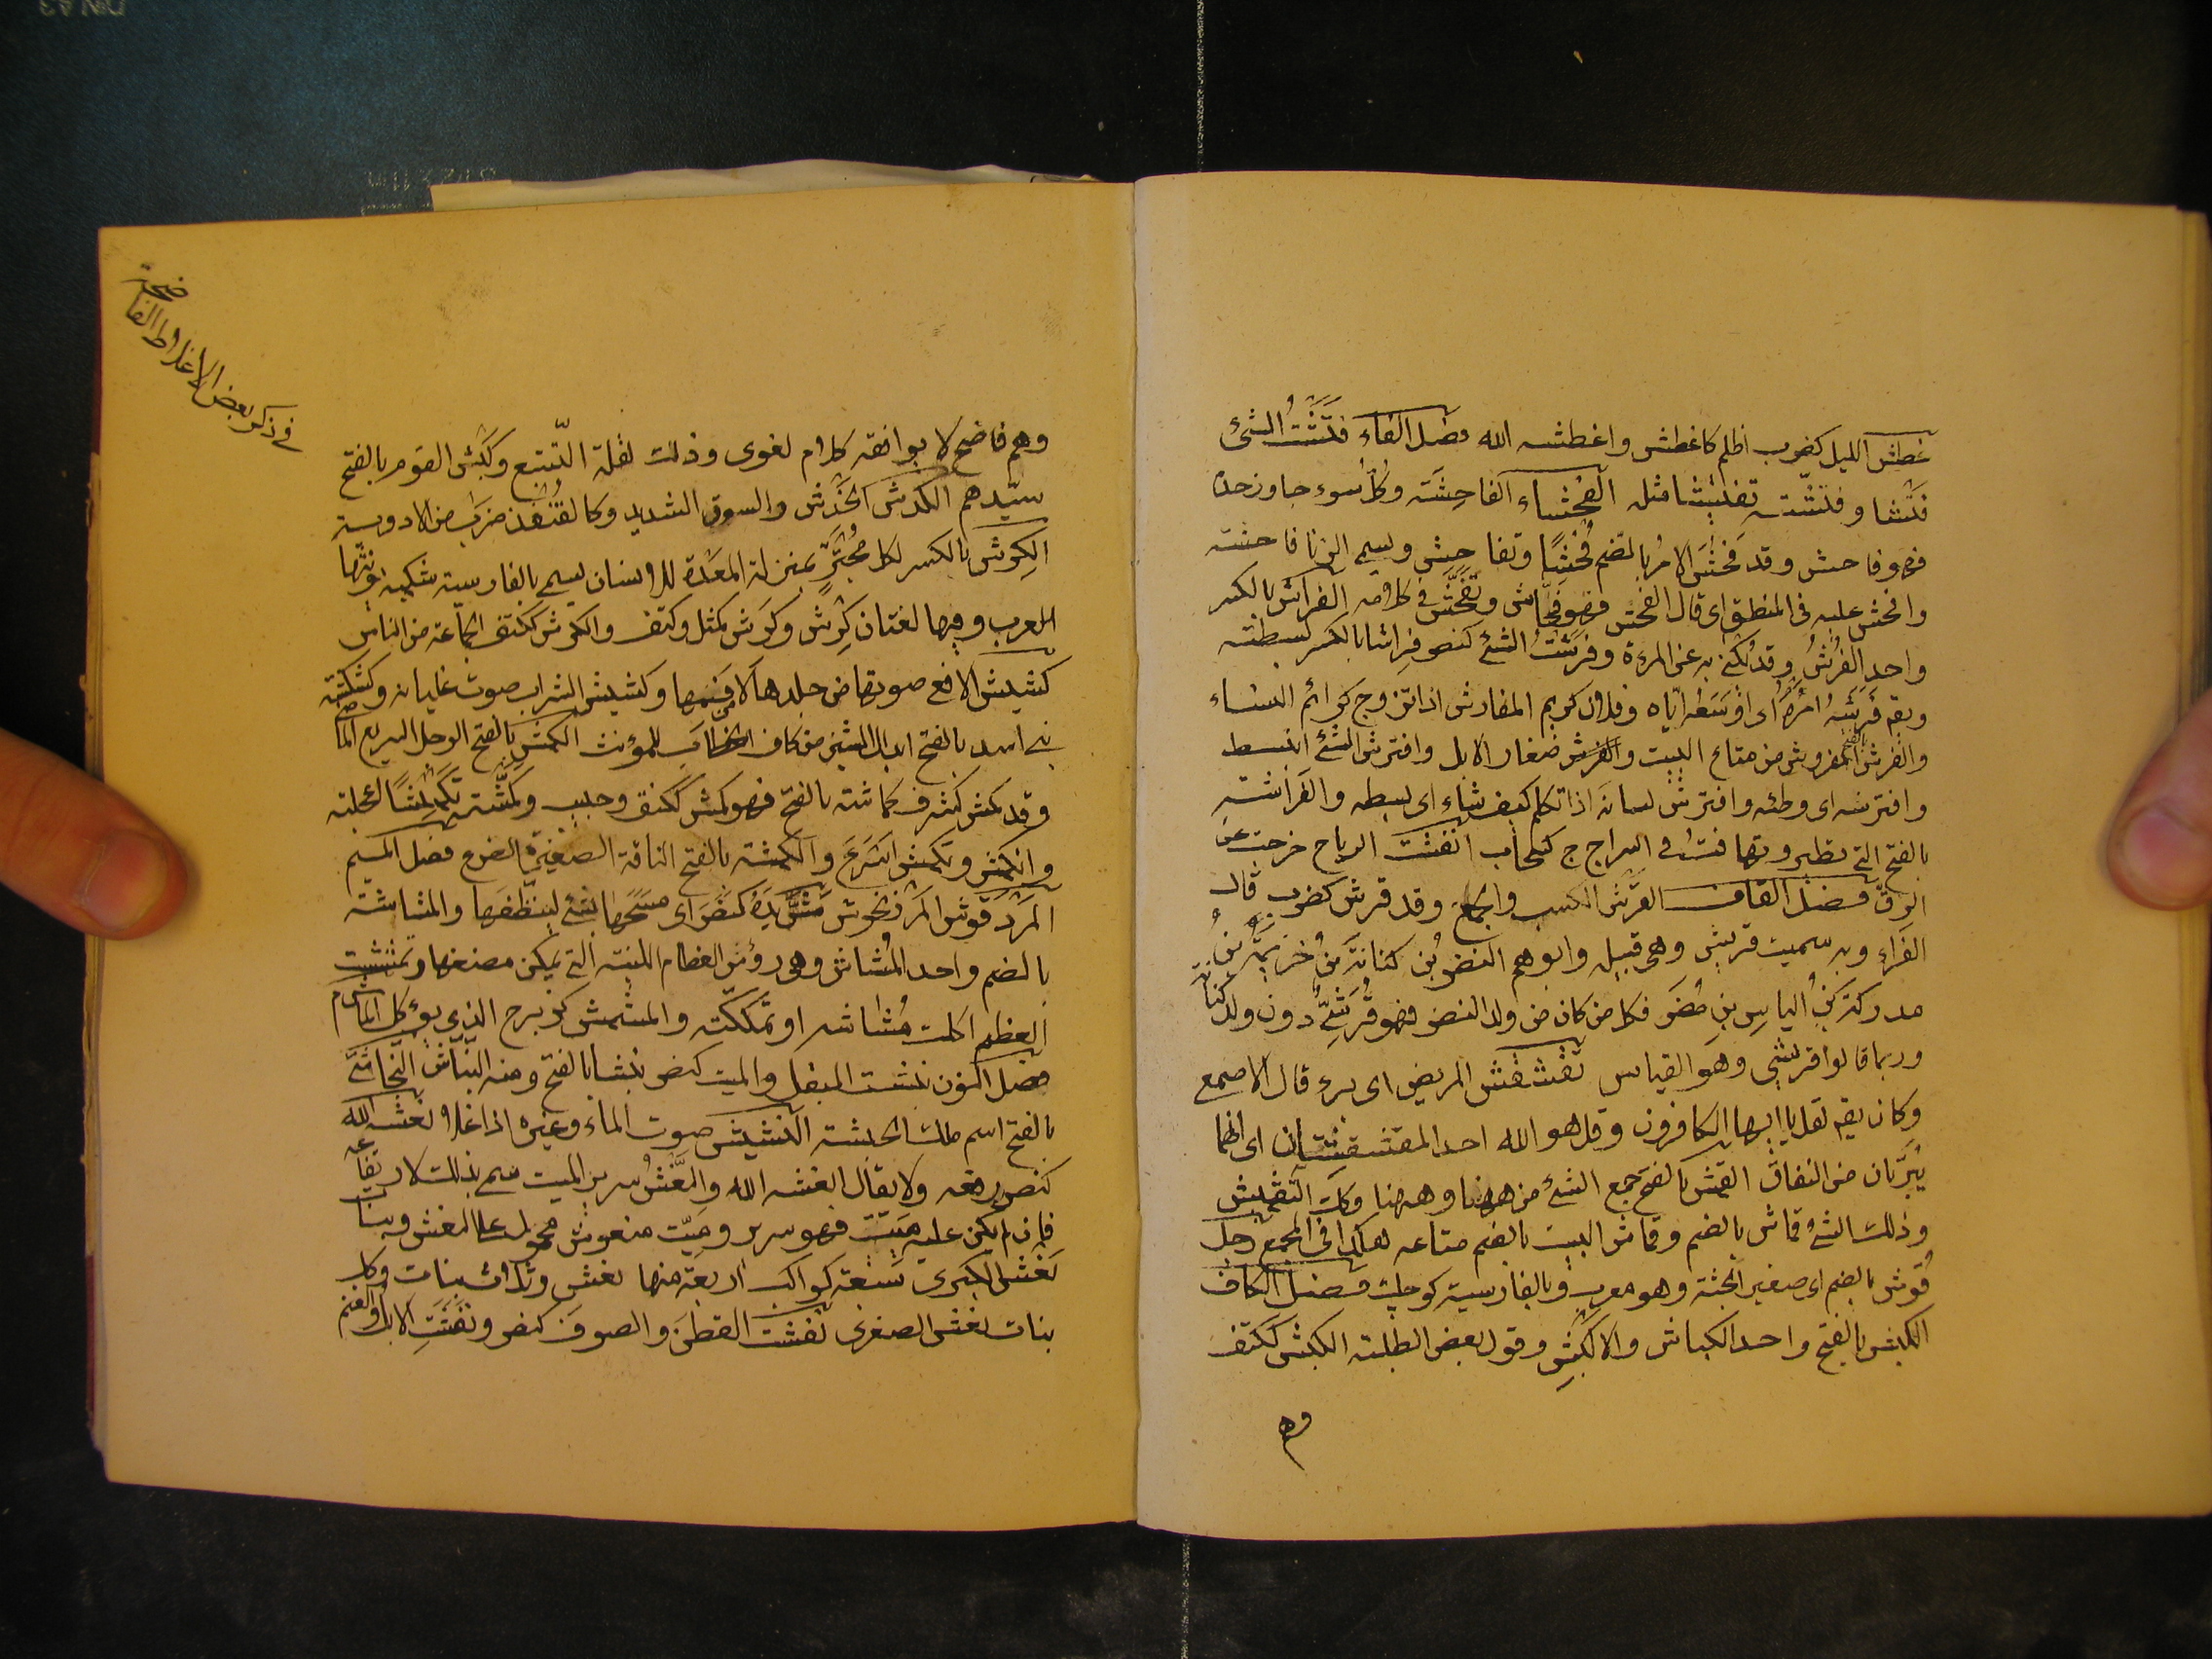 غطش الليل كضرب اظلم كاغطش واغطشه الله فصل الفاء فَتَشْتُ الشئ
فَتْشا وفتّشته تفتيشا مثله الفحشاء الفاحِشَة وكلّ سُوء جاوز حدّه
فهو فاحش وقد فَحُشَ الامرُ بالضم فُحْشًا وتفاحش ويسمى الزنا فاحشة
وافحش عليه فى المنطق اى قال الفحش فهو فحّاش وتفحّش فى كلامه الفِراش بالكسر
واحد الفُرُش وقد يُكنى به عن المرءة وفرشتُ الشئ كنصر فِراشا بالكسر بسطته
ويقـ فَرَشَهُ امرَهُ اى اَوْسَعَهُ ايّاه وفلان كريم المفارش اذا تزوج كرائم النساء
والفرش بالفتح المفروش من متاع البيت والفرش صغار الابل وافترش الشئ انبسط
وافترشه اى وطئه وافترش لسانَه اذا تكلم كيف شاء اى بسطه والفَراشة
بالفتح التى تطير وتهافت فى السراج ج كسحاب انفشّت الرياح خرجت عن
الزقّ فصل القاف القَرْش الكسب والجمع وقد قرش كضرب قال
الفراء وبه سميت قريش وهى قبيلة وابوهم النضر بن كنانة بن خُزَيمَة بن
مدركة بن الياس بن مُضَر فكل من كان من ولد النضر فهو قُرَشىٌّ دون ولد كنانة
وربما قالوا قريشى وهو القياس تقشقش المريض اى برء قال الاصمعى
وكان يقـ لقل يا ايها الكافرون وقل هو الله احد المقشقشتان اى انهما
يُبرّئان من النفاق القمش بالفتح جمع الشئ من ههنا وههنا وكذا التقميش
وذلك الشئ قماش بالضم وقماش البيت بالضم متاعه هكذا فى المجمع رجل
قُوش بالضم اى صغير الجثة وهو معرب وبالفارسية كوجك فصل الكاف
الكبش بالفتح واحد الكباش والاكبُش وقول بعض الطلبة الكبش ككتف
وهم
فى ذكر بعض الاغلاط الفاضحة
وهم فاضح لا يوافقه كلام لغوى وذلك لقلة التّتبع وكبش القوم بالفتح
سيّدهم الكدش الخَدْش والسوق الشديد وكالقُنْفُذ ضرب من الادوية
الكرش بالكسر لكل مُجْتَرّ بمنزلة المعدة للانسان يسمى بالفارسية شكمبه تؤنثها
العرب وفيها لغتان كِرْش وكَرِش كمثل وكتف والكرش ككتف الجماعة من الناس
كشيش الافعى صوتها من جلدها لا من فمها وكشيش الشراب صوت غليانه وكشكشة
بنى اسد بالفتح ابدال الشين من كاف الخطاب للمؤنث الكمش بالفتح الرجل السريع الماضى
وقد كمش كشرف كماشة بالفتح فهو كمش ككتف وحبيب وكمّشته تكميشًا اعجلته
وانكمش وتكمش اَسْرَعَ والكمشة بالفتح الناقة الصغيرة الضرع فصل الميم
المَرْدَقوش المَرْزَنجوش مَشَّ يَدَهُ كنصَرَ اى مسحها بشئ لينظّفها والمشاشة
بالضم واحد المُشاش وهى رؤس العظام اللينة التى يمكن مضغها وتمشّيت
العظم اكلت مُشاشه او تمكّكته والمشمش كزبرج الذى يؤكل
فصل النون نبشت البقل والميت كنصر نبشا بالفتح ومنه النبّاش النجاشى
بالفتح اسم ملك الحبشة النشيش صوت الماء وغيره اذا غلا نعشه الله
كنصر رفعه ولا يقال انعشه الله والنَّعْشُ سرير الميت سمى بذلك لارتفاعه
فان لم يكن عليه مَيِّت فهو سرير ومَيّت منعوش محمول على النعش وبنات
نَعْش الكبرى سبعة كواكب اربعة منها نعش وثلاث بنات وكذا
بنات نعش الصغرى نفشت القطن والصوف كنصر ونَفَشَتِ الابل والغنم